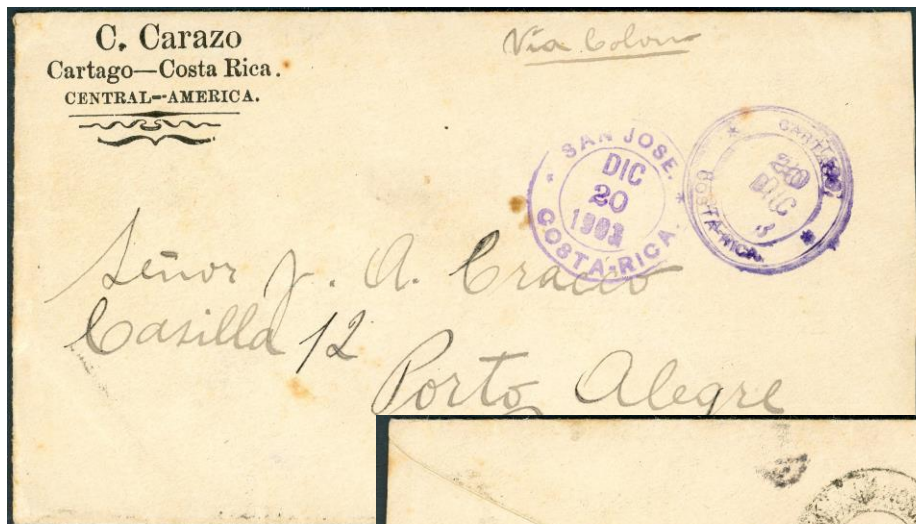 C. Carazo
Cartago—Costa Rica.
CENTRAL-AMERICA.
Via Colon
* SAN JOSE. *
DIC
20
COSTA-RICA
20
DIC
3
COSTA-RICA.
Señor J. A.
Casilla 12
Porto Alegre